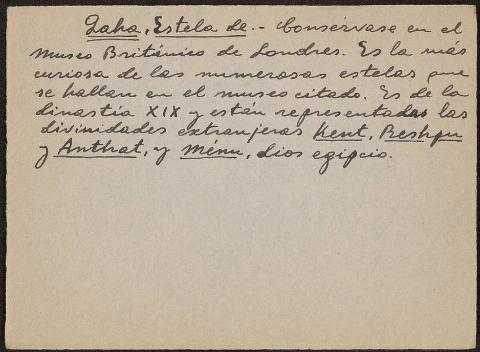 Qaha, Estela de.- Consérvase en el
Museo Británico de Londres. Es la más
curiosa de las numerosas estelas que
se hallan en el museo citado. Es de la
dinastía XIX y están representadas las
divinidades extranjeras Kent, Reshpu
y Anthat, y Ménu, dios egipcio.